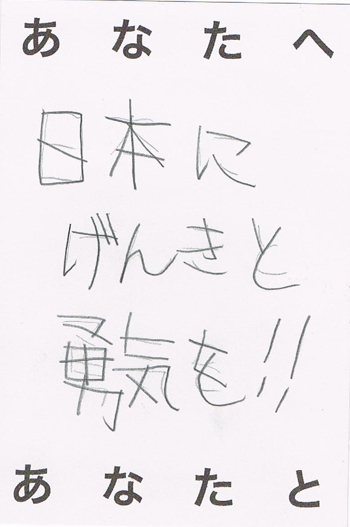 あなたへ
日本に
げんきと
勇気を!!
あなたと